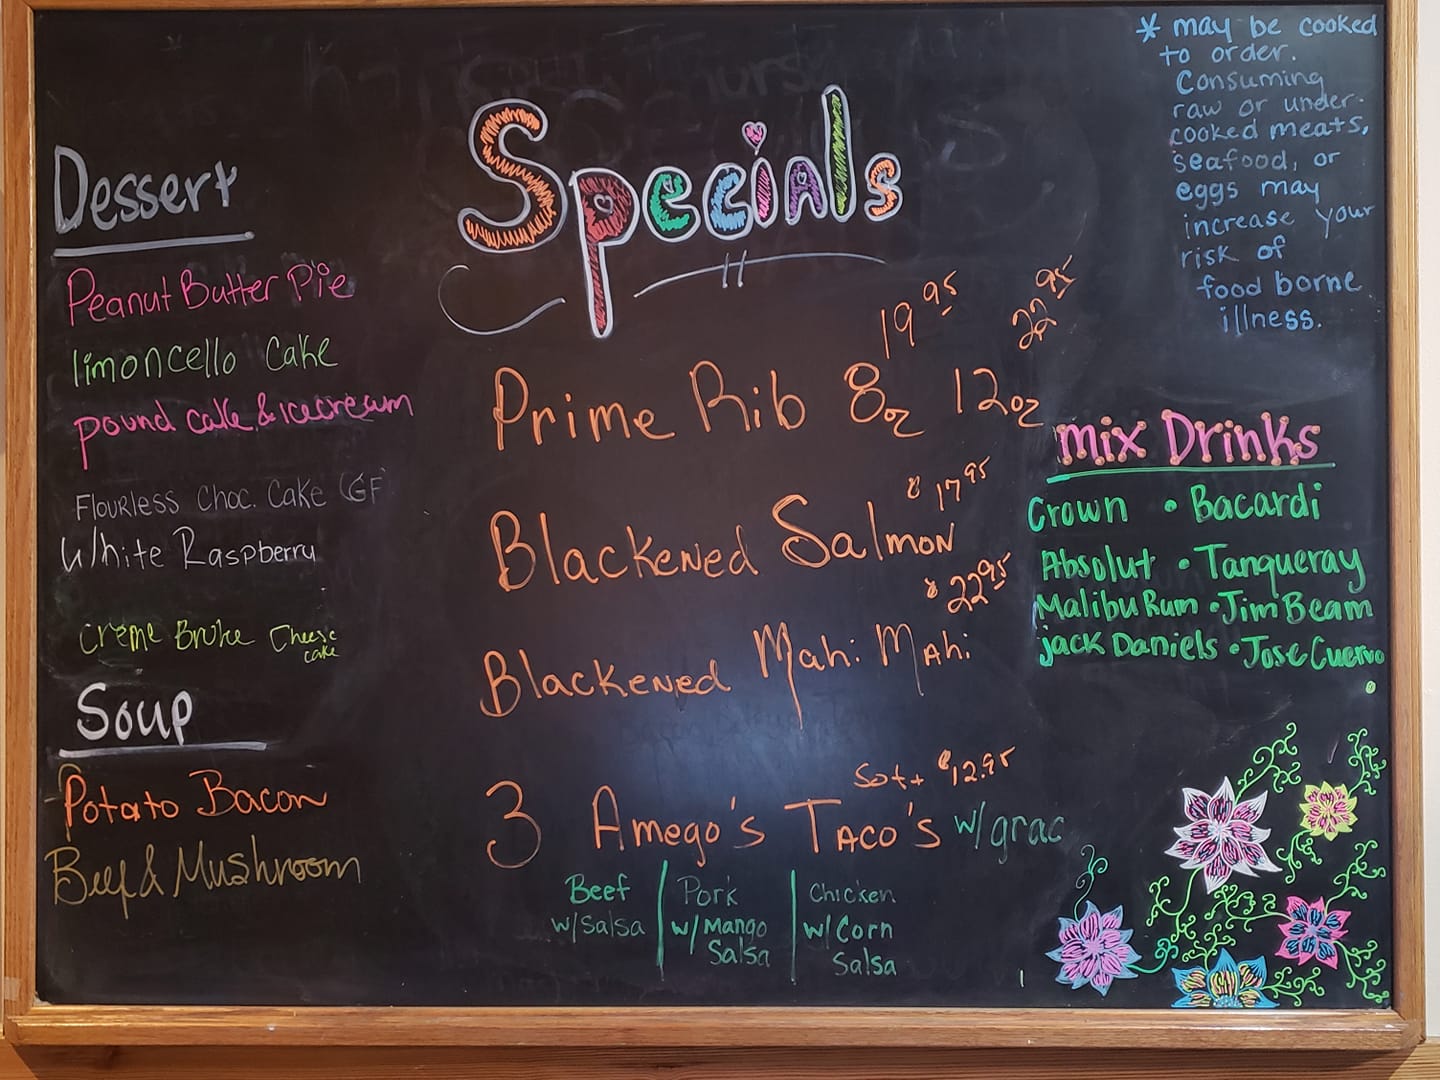 Specials
Dessert
Peanut Butter Pie
limoncello Cake
pound cake & icecream
Flourless Choc. Cake GF
White Raspberry
Creme Brule Cheese
cake
Soup
Potato Bacon
Beef & Mushroom
19 95 22 95
Prime Rib 8oz 12oz
$ 17 95
Blackened Salmon
$ 22 95
Blackened Mahi Mahi
$12.95
3 Amego's Taco's w/grac
Beef
w/Salsa
Pork
w/Mango
Salsa
Chicken
w/Corn
Salsa
* may be cooked
to order.
Consuming
raw or under-
cooked meats,
seafood, or
eggs may
increase your
risk of
food borne
illness.
Mix Drinks
Crown • Bacardi
Absolut • Tanqueray
Malibu Rum • Jim Beam
Jack Daniels • Jose Cuervo